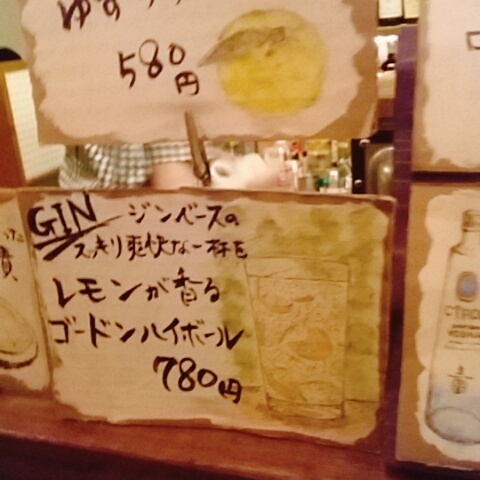 ゆず
580
円
GIN ジンベースの
スッキリ爽快な一杯を
レモンが香る
ゴードンハイボール
780円